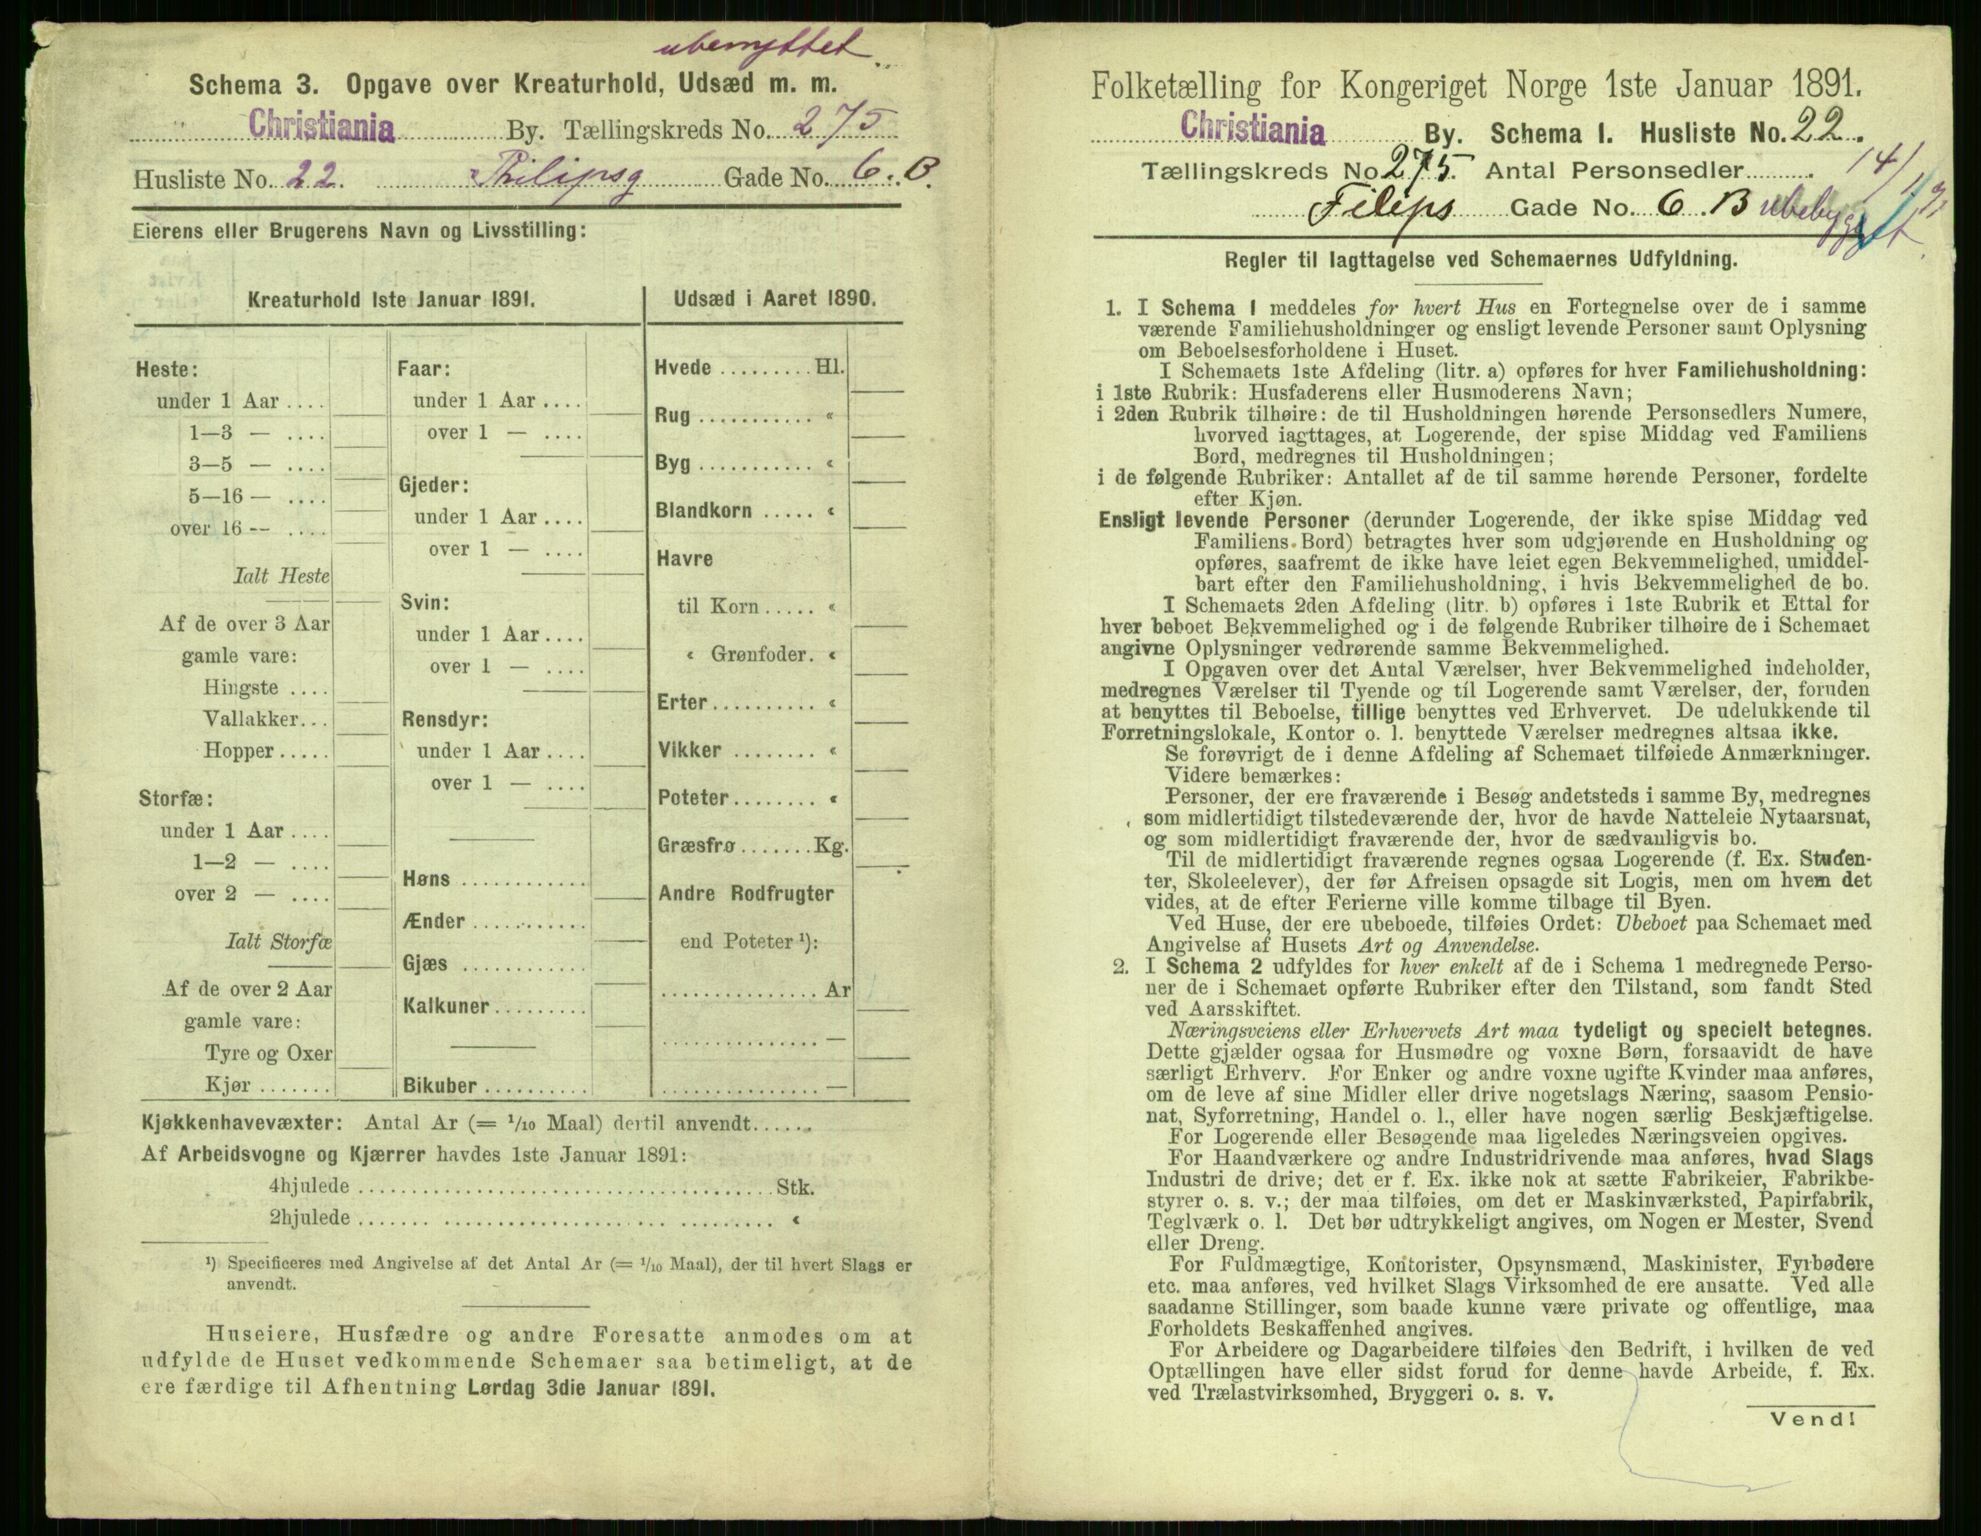 ubenyttet
Schema 3. Opgave over Kreaturhold, Udsæd m. m.
Christiania By. Tællingskreds No. 275
Husliste No. 22. Philipsg Gade No. 6. B.
Eierens eller Brugerens Navn og Livsstilling:
Kreaturhold 1ste Januar 1891.
Heste:
under 1 Aar ....
1—3 — ....
3—5 — ....
5—16 — ....
over 16 -- ....
Ialt Heste
Af de over 3 Aar
gamle vare:
Hingste ....
Vallakker...
Hopper .....
Storfæ:
under 1 Aar ....
1—2 — ....
over 2 — ....
Ialt Storfæ
Af de over 2 Aar
gamle vare:
Tyre og Oxer
Kjør .......
Faar:
under 1 Aar ....
over 1 — ....
Gjeder:
under 1 Aar ....
over 1 — ....
Svin:
under 1 Aar ....
over 1 — ....
Rensdyr:
under 1 Aar ....
over 1 — ....
Høns ............
Ænder ...........
Gjæs ............
Kalkuner .........
Bikuber ..........
Udsæd i Aaret 1890.
Hvede ......... Hl.
Rug ........... «
Byg ........... «
Blandkorn ..... «
Havre
til Korn ..... «
« Grønfoder. «
Erter .......... «
Vikker ........ «
Poteter ........ «
Græsfrø ....... Kg.
Andre Rodfrugter
end Poteter ¹):
............... Ar
............... —
............... —
Kjøkkenhavevæxter: Antal Ar (= 1/10 Maal) dertil anvendt......
Af Arbeidsvogne og Kjærrer havdes 1ste Januar 1891:
4hjulede ........................................ Stk.
2hjulede ........................................ «
¹) Specificeres med Angivelse af det Antal Ar (= 1/10 Maal), der til hvert Slags er
anvendt.
Huseiere, Husfædre og andre Foresatte anmodes om at
udfylde de Huset vedkommende Schemaer saa betimeligt, at de
ere færdige til Afhentning Lørdag 3die Januar 1891.
Folketælling for Kongeriget Norge 1ste Januar 1891.
Christiania By. Schema 1. Husliste No. 22.
Tællingskreds No. 275. Antal Personsedler..........
14/1 91
Filips Gade No. 6. B ubebygget.
Regler til Iagttagelse ved Schemaernes Udfyldning.
1. I Schema 1 meddeles for hvert Hus en Fortegnelse over de i samme
værende Familiehusholdninger og ensligt levende Personer samt Oplysning
om Beboelsesforholdene i Huset.
I Schemaets 1ste Afdeling (litr. a) opføres for hver Familiehusholdning:
i 1ste Rubrik: Husfaderens eller Husmoderens Navn;
i 2den Rubrik tilhøire: de til Husholdningen hørende Personsedlers Numere,
hvorved iagttages, at Logerende, der spise Middag ved Familiens
Bord, medregnes til Husholdningen;
i de følgende Rubriker: Antallet af de til samme hørende Personer, fordelte
efter Kjøn.
Ensligt levende Personer (derunder Logerende, der ikke spise Middag ved
Familiens Bord) betragtes hver som udgjørende en Husholdning og
opføres, saafremt de ikke have leiet egen Bekvemmelighed, umiddel-
bart efter den Familiehusholdning, i hvis Bekvemmelighed de bo.
I Schemaets 2den Afdeling (litr. b) opføres i 1ste Rubrik et Ettal for
hver beboet Bekvemmelighed og i de følgende Rubriker tilhøire de i Schemaet
angivne Oplysninger vedrørende samme Bekvemmelighed.
I Opgaven over det Antal Værelser, hver Bekvemmelighed indeholder,
medregnes Værelser til Tyende og til Logerende samt Værelser, der, foruden
at benyttes til Beboelse, tillige benyttes ved Erhvervet. De udelukkende til
Forretningslokale, Kontor o. l. benyttede Værelser medregnes altsaa ikke.
Se forøvrigt de i denne Afdeling af Schemaet tilføiede Anmærkninger.
Videre bemærkes:
Personer, der ere fraværende i Besøg andetsteds i samme By, medregnes
som midlertidigt tilstedeværende der, hvor de havde Natteleie Nytaarsnat,
og som midlertidigt fraværende der, hvor de sædvanligvis bo.
Til de midlertidigt fraværende regnes ogsaa Logerende (f. Ex. Studen-
ter, Skoleelever), der før Afreisen opsagde sit Logis, men om hvem det
vides, at de efter Ferierne ville komme tilbage til Byen.
Ved Huse, der ere ubeboede, tilføies Ordet: Ubeboet paa Schemaet med
Angivelse af Husets Art og Anvendelse.
2. I Schema 2 udfyldes for hver enkelt af de i Schema 1 medregnede Perso-
ner de i Schemaet opførte Rubriker efter den Tilstand, som fandt Sted
ved Aarsskiftet.
Næringsveiens eller Erhvervets Art maa tydeligt og specielt betegnes.
Dette gjælder ogsaa for Husmødre og voxne Børn, forsaavidt de have
særligt Erhverv. For Enker og andre voxne ugifte Kvinder maa anføres,
om de leve af sine Midler eller drive nogetslags Næring, saasom Pensio-
nat, Syforretning, Handel o. l., eller have nogen særlig Beskjæftigelse.
For Logerende eller Besøgende maa ligeledes Næringsveien opgives.
For Haandværkere og andre Industridrivende maa anføres, hvad Slags
Industri de drive; det er f. Ex. ikke nok at sætte Fabrikeier, Fabrikbe-
styrer o. s. v.; der maa tilføies, om det er Maskinværksted, Papirfabrik,
Teglværk o. l. Det bør udtrykkeligt angives, om Nogen er Mester, Svend
eller Dreng.
For Fuldmægtige, Kontorister, Opsynsmænd, Maskinister, Fyrbødere
etc. maa anføres, ved hvilket Slags Virksomhed de ere ansatte. Ved alle
saadanne Stillinger, som baade kunne være private og offentlige, maa
Forholdets Beskaffenhed angives.
For Arbeidere og Dagarbeidere tilføies den Bedrift, i hvilken de ved
Optællingen have eller sidst forud for denne havde Arbeide, f. Ex.
ved Trælastvirksomhed, Bryggeri o. s. v.
Vend!